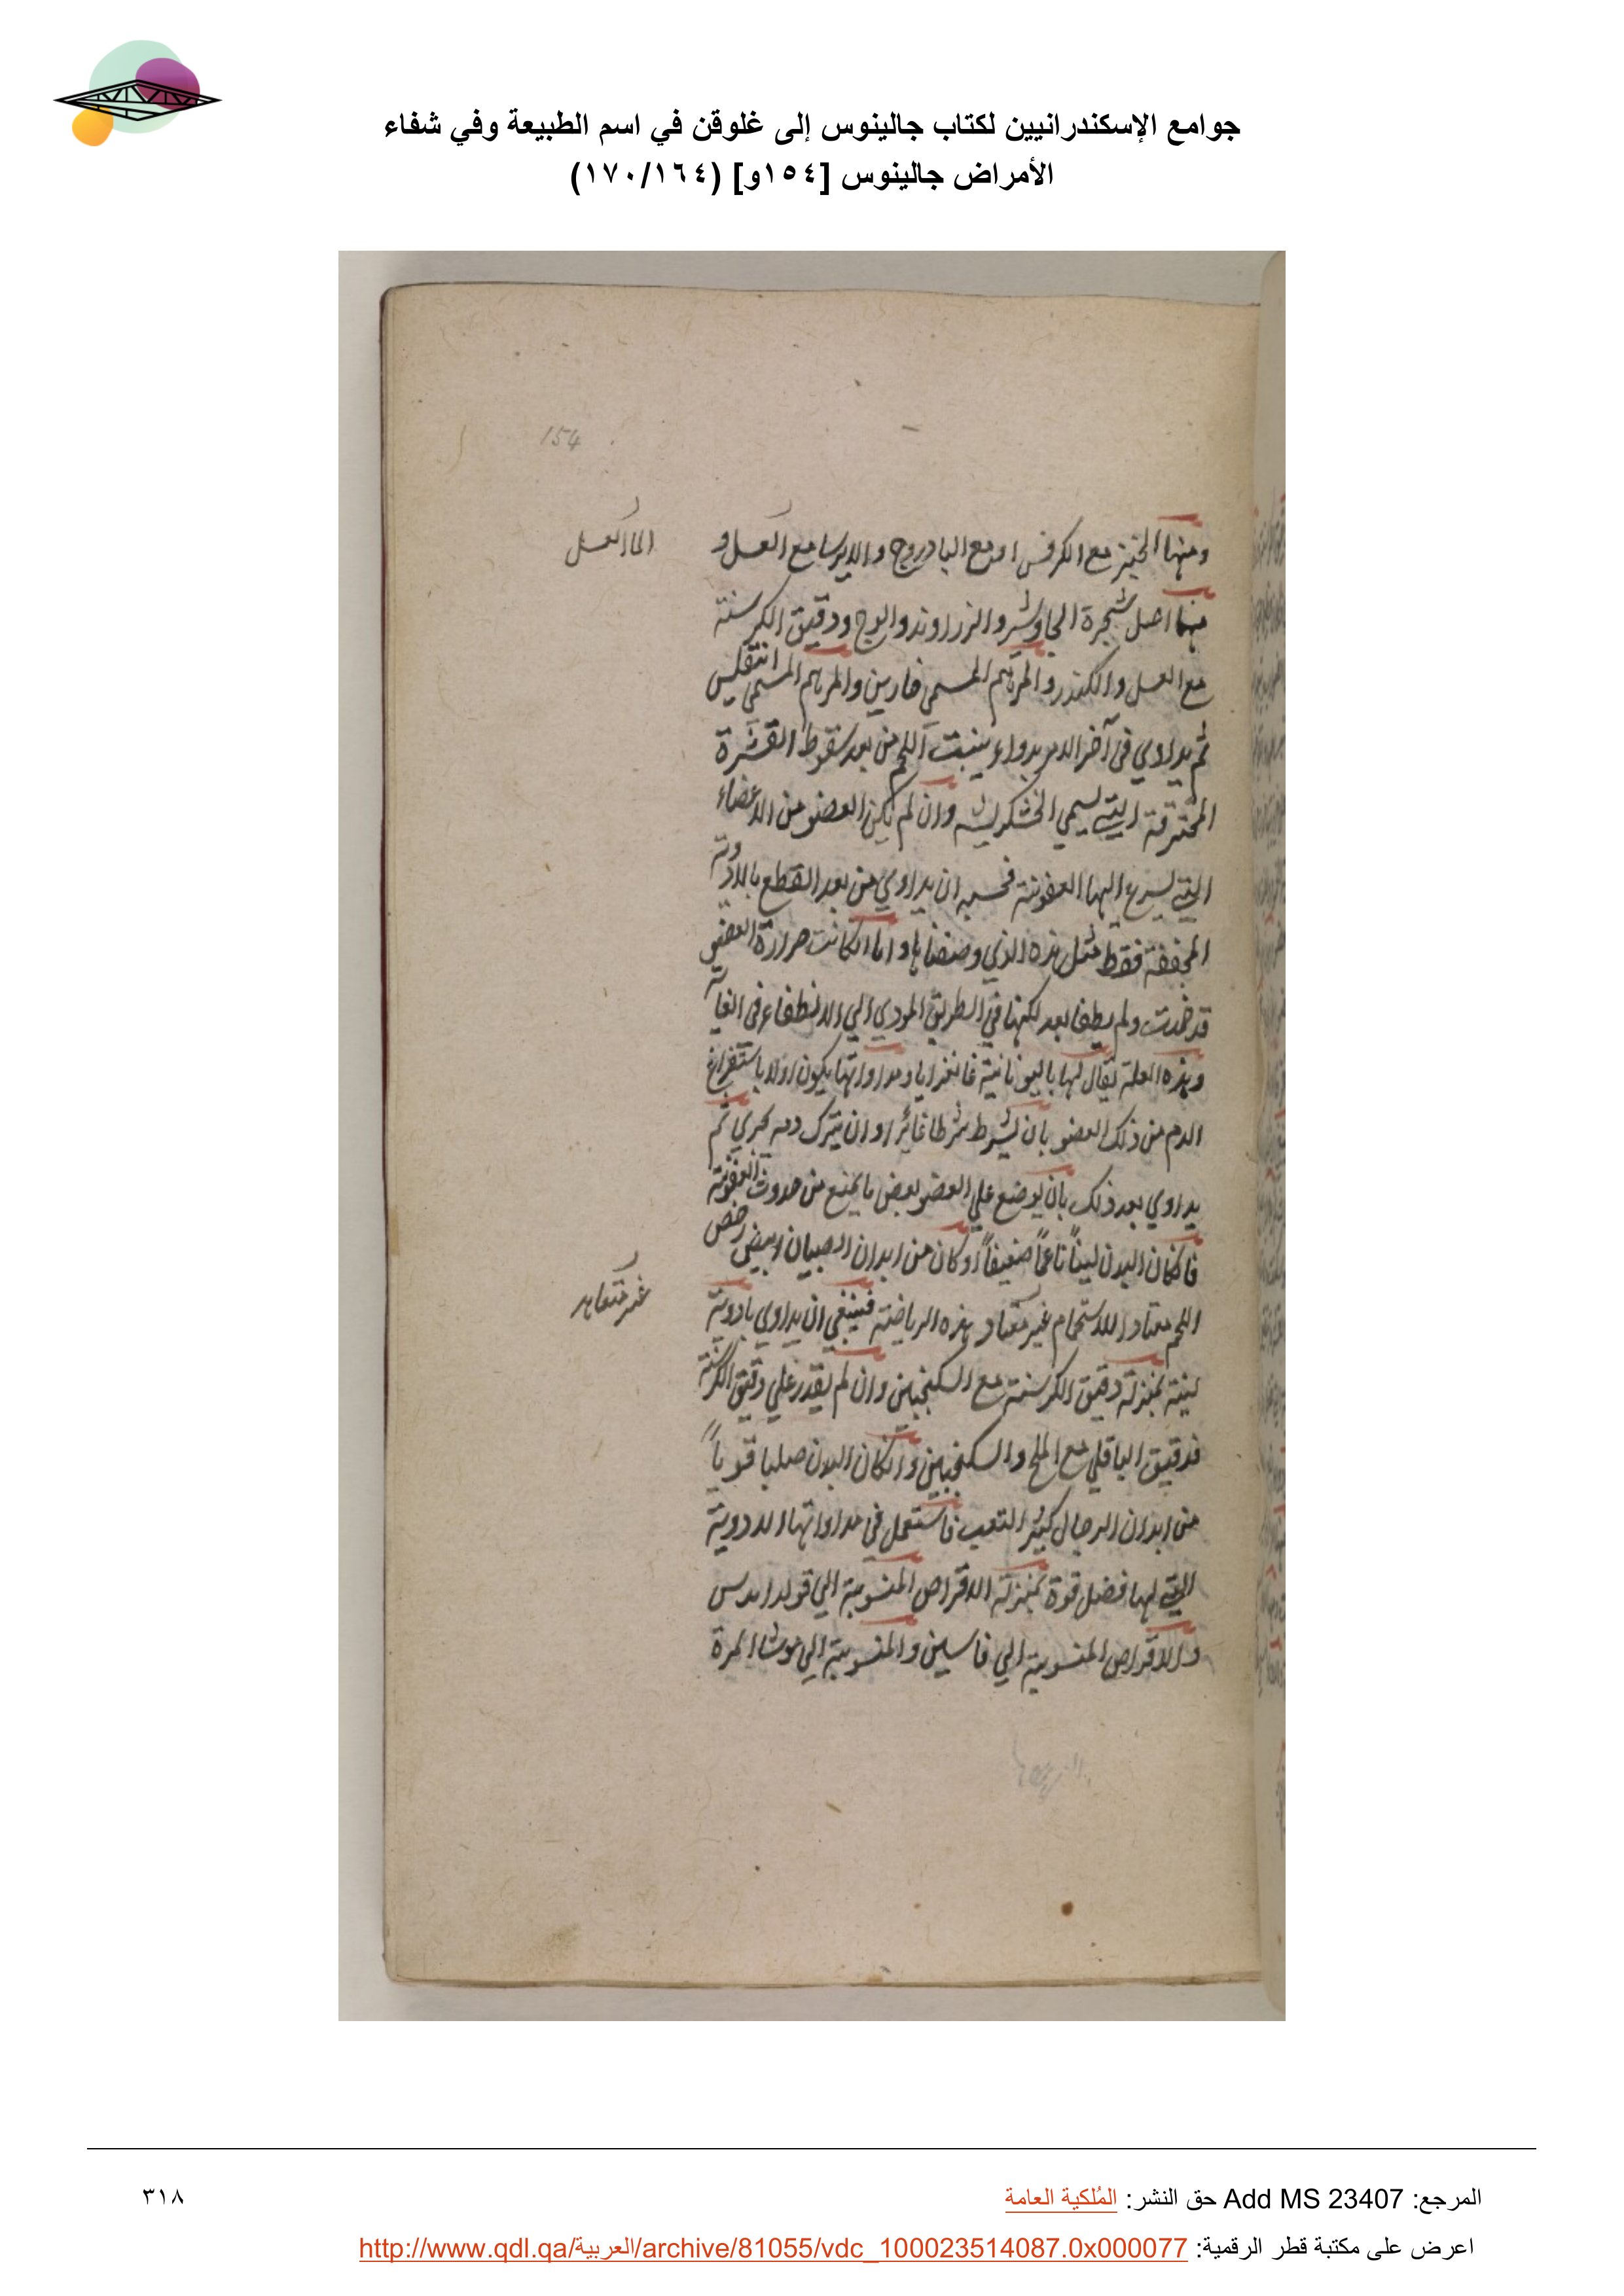 جوامع الإسكندرانيين لكتاب جالينوس إلى غلوقن في اسم الطبيعة وفي شفاء
الأمراض جالينوس [١٥٤و] (١٧٠/١٦٤)
154
ومنها الخبز مع الكرفس او مع البادروج والايرسا مع العسل و
الماء العسل
منها اصل شجرة الجاوشير والزراوند والوج ودقيق الكرسنة
مع العسل والكندر والمرهم المسمى والمرهم المسمى
ثم يداوي في آخر الامر بدواء ينبت اللحم من بعد سقوط القشرة
المحترقة التي تسمي الخشكريشه وان لم يكن العضو من الاعضاء
التي يسرع اليها العفونة فحسبه ان يداوي من بعد القطع بالادوية
المجففة فقط مثل هذه الذي وصفناها واما انكانت حرارة العضو
قد خمدت ولم يطفا بعد لكنها في الطريق المودي الي الانطفاء في الغاية
وهذه العلة يقال لها باليونانية غانغرايا ومداواتها يكون اولا باستفراغ
الدم من ذلك العضو بان يشرط شرطا غائرا وان يترك دمه يجري ثم
يداوي بعد ذلك بان يوضع علي العضو بعض ما يمنع من حدوث العفونة
فانكان البدن لينًا ناعمًا ضعيفًا او كان من ابدان الصبيان ابيض رخص
اللحم معتادا للاستحمام غير معتاد بهذه الرياضة فينبغي ان يداوي بادوية
غير
لينة بمنزلة دقيق الكرسنة مع السكنجبين وان لم يقدر علي دقيق الكرسنة
فدقيق الباقلي مع الملح والسكنجبين وانكان البدن صلبا قوياً
من ابدان الرجال كثير التعب فاستعمل في مداواتها الادوية
التي لها فضل قوة بمنزلة الاقراص المنسوبة الي
والاقراص المنسوبة الي فاسين والمنسوبة الي موشا المرة
المرجع: Add MS 23407 حق النشر: المُلكية العامة
٣١٨
اعرض على مكتبة قطر الرقمية: http://www.qdl.qa/العربية/archive/81055/vdc_100023514087.0x000077